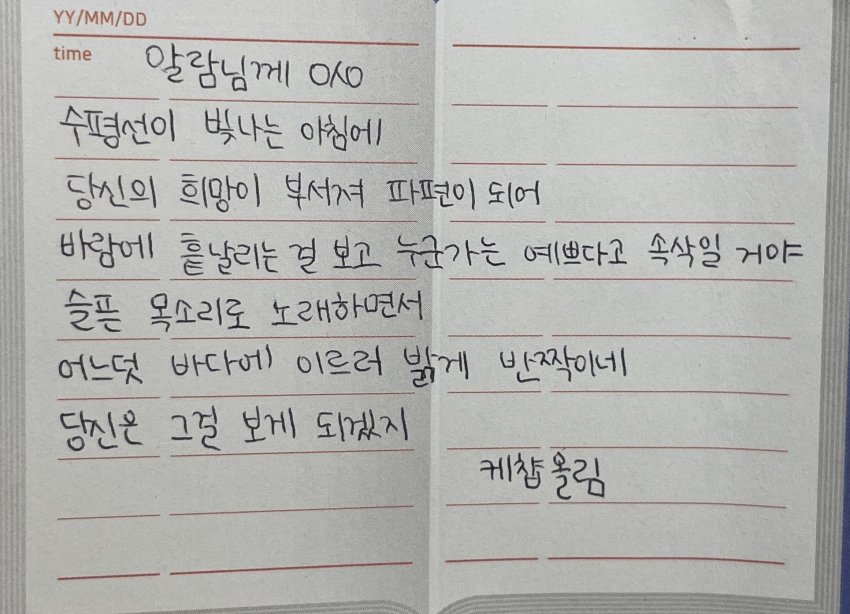 YY/MM/DD
time
알람님께 OλO
수평선이 빛나는 아침에
당신의 희망이 부서져 파편이 되어
바람에 흩날리는 걸 보고 누군가는 예쁘다고 속삭일 거야
슬픈 목소리로 노래하면서
어느덧 바다에 이르러 밝게 반짝이네
당신은 그걸 보게 되겠지
케챱 올림